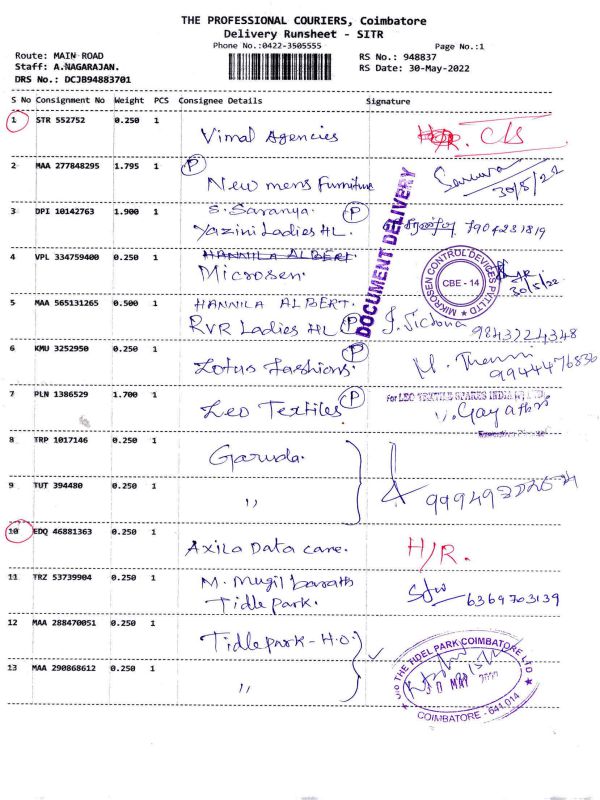 THE PROFESSIONAL COURIERS, Coimbatore
Delivery Runsheet - SITR
Phone No.:0422-3505555 Page No.:1
Route: MAIN ROAD RS No.: 948837
Staff: A.NAGARAJAN. RS Date: 30-May-2022
DRS No.: DCJB94883701
S No Consignment No Weight PCS Consignee Details Signature
1 STR 552752 0.250 1
Vimal Agencies C/s
2 MAA 277848295 1.795 1 P
New mens Furniture 30/5/22
3 DPI 10142763 1.900 1 S. Saranya. P
Yazini Ladies HL. 7904231819
DOCUMENT DELIVERY
4 VPL 334759400 0.250 1 HANNILA ALBERT.
Microsen. 30/5/22
MIKROSEN CONTROL DEVICES PVT LTD
CBE - 14
5 MAA 565131265 0.500 1 HANNILA ALBERT.
RVR Ladies HL P J. Victoria 9843224348
6 KMU 3252950 0.250 1 P
Lotus Fashions. 9944476836
7 PLN 1386529 1.700 1 P For LEO TEXTILE SPARES INDIA (P) LTD
Leo Textiles Gayathri
8 TRP 1017146 0.250 1 Garuda.
9 TUT 394480 0.250 1 ,,
10 EDQ 46881363 0.250 1
Axila Data care. H/R.
11 TRZ 53739904 0.250 1 M. Mugil barath
Tidle Park. 6369703139
12 MAA 288470051 0.250 1 Tidle park - H.O.
13 MAA 290868612 0.250 1 ,,
THE TIDEL PARK COIMBATORE LTD
30 MAY
COIMBATORE - 641 014